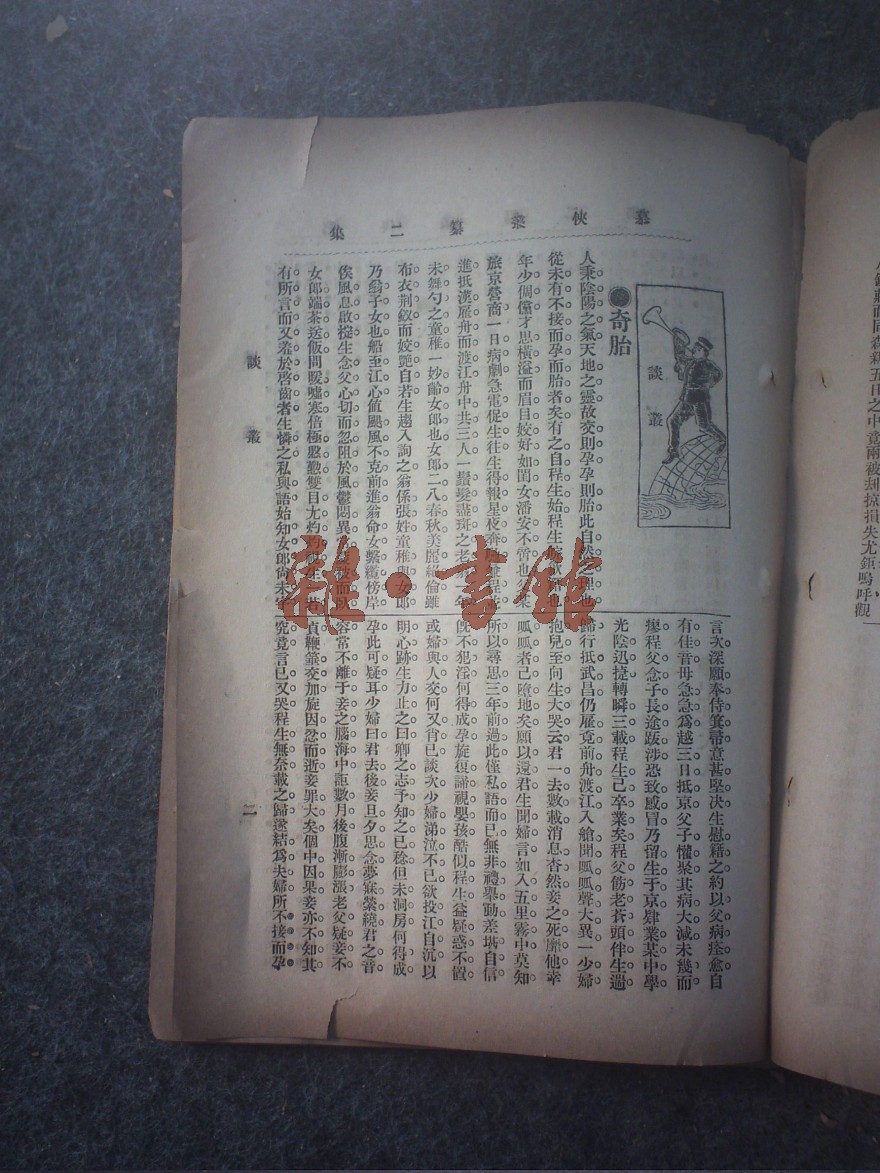 慕俠叢纂二集
談叢
奇胎
人秉陰陽之氣天地之靈故交則孕孕則胎此自然之理也
從未有不接而孕而胎者矣有之自程生始程生
年少倜儻才思橫溢而眉目姣好如閨女潘安不啻也父某
旅京營商一日病劇急電促生往生得報星夜奔馳兼程
進抵漢雇舟而渡江舟中共三人一鬚髮盡斑之老
未舞勺之童稚一妙齡女郎也女郎二八春秋美麗絕倫雖
布衣荆釵而姣艷自若生趨入詢之翁係張姓童稚與女郎
乃翁子女也船至江心値颶風不克前進翁命女繫纜傍岸
俟風息啟椗生念父心切而忽阻於風鬱悶異
女郎端茶送飯問暖噓寒倍極慇懃雙目尤灼灼
有所言而又羞於啓齒者生憐之私與語始知女郎尙未字
言次深願奉侍箕箒意甚堅決生慰藉之約以父病痊愈自
有佳音毋急急爲越三日抵京父子懽聚其病大減未幾而
瘳程父念子長途跋涉恐致感冒乃留生于京肆業某中學
光陰迅捷轉瞬三載程生已卒業矣程父飭老蒼頭伴生遄
歸行抵武昌仍雇竟前舟渡江入艙聞呱呱聲大異一少婦
抱兒至向生大哭云君一去數載消息杳然妾之死靡他幸
呱呱者已墮地矣願以還君生聞婦言如入五里霧中莫知
所以尋思三年前過此僅私語而已無非禮舉動差堪自信
旣不犯淫何得成孕旋復諦視嬰孩酷似程生益疑惑不置
或婦與人交何又肖已談次少婦涕泣不已欲投江自沉以
明心跡生力止之曰卿之志予知之已稔但未洞房何得成
孕此可疑耳少婦曰君去後妾旦夕思念夢寐縈繞君之音
容常不離于妾之腦海中詎數月後腹漸膨漲老父疑妾不
貞鞭箠交加旋因忿而逝妾罪大矣個中因果妾亦不知其
究竟言已又哭程生無奈載之歸遂結爲夫婦所不接而孕
談叢
二
雜·書館